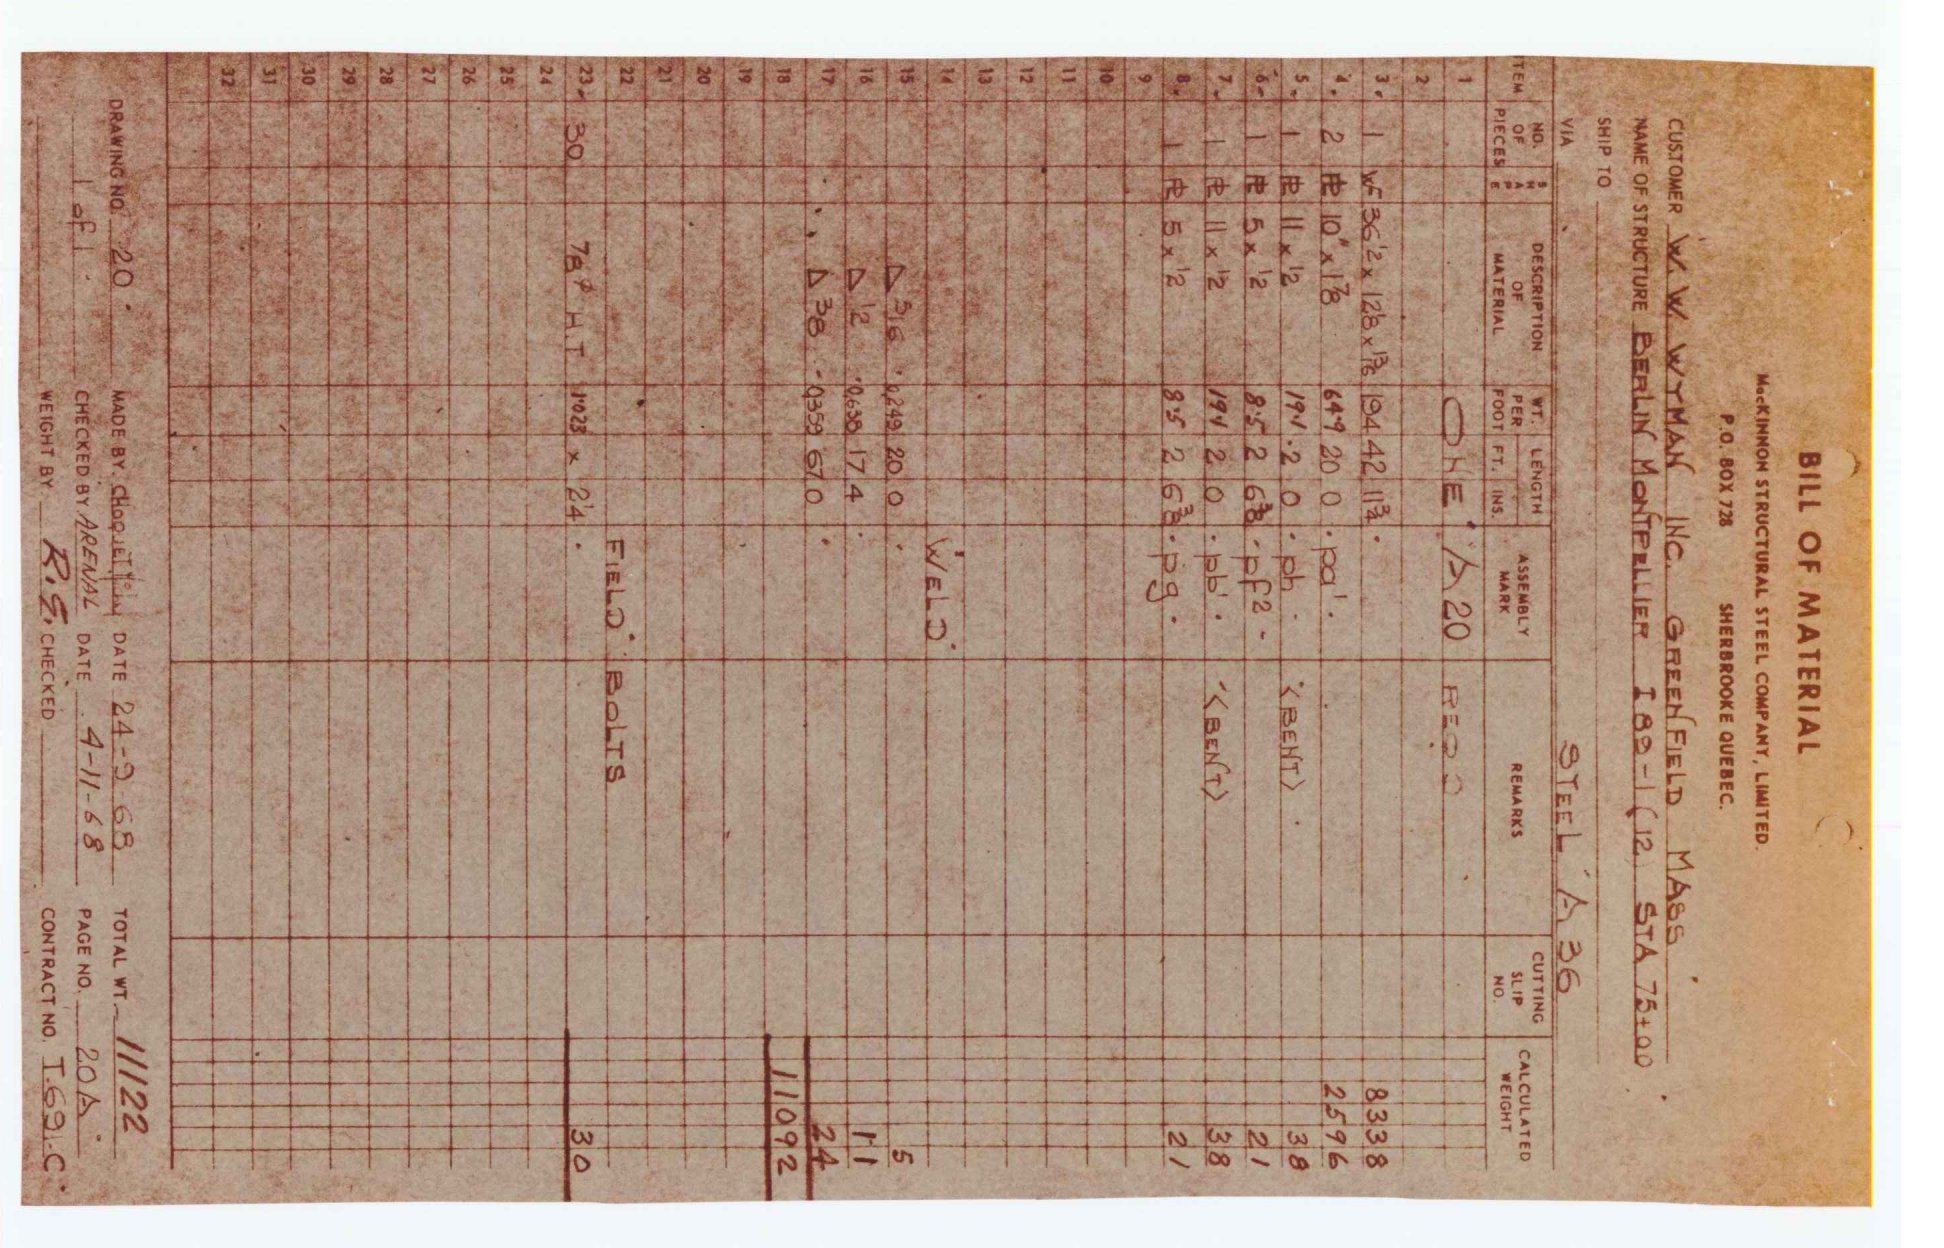 BILL OF MATERIAL
MacKINNON STRUCTURAL STEEL COMPANY, LIMITED.
P.O. BOX 728 SHERBROOKE QUEBEC.
CUSTOMER W. W. WYMAN INC. GREENFIELD MASS
NAME OF STRUCTURE BERLIN MONTPELLIER I 89-1 (12) STA 75+00
SHIP TO
VIA STEEL A 36
ITEM NO. OF PIECES SHAPE DESCRIPTION OF MATERIAL WT. PER FOOT LENGTH FT. INS. ASSEMBLY MARK REMARKS CUTTING SLIP NO. CALCULATED WEIGHT
1 ONE A20 REQD
2
3. 1 WF 36 1/2 x 12 1/8 x 13/16 194 42 11 3/4 8338
4. 2 PL 10" x 1 7/8 64.9 20 0 pa' 2596
5. 1 PL 11 x 1/2 19.1 2 0 ph <BENT> 38
6. 1 PL 5 x 1/2 8.5 2 6 3/8 pf2 21
7. 1 PL 11 x 1/2 19.1 2 0 pb' <BENT> 38
8. 1 PL 5 x 1/2 8.5 2 6 3/8 pg 21
9
10
11
12
13
14 WELD
15 △ 5/16 0.249 20 0 5
16 △ 1/2 0.638 17 4 11
17 △ 3/8 0.359 67 0 24
18 11092
19
20
21
22 FIELD BOLTS
23. 30 7/8 φ H.T 1.023 x 2 1/4 30
24
25
26
27
28
29
30
31
32
DRAWING NO. 20 MADE BY DATE 24-9 68 TOTAL WT. 11122
1 of 1 CHECKED BY ARENAL DATE 4-11-68 PAGE NO. 20A
WEIGHT BY R.G. CHECKED CONTRACT NO. T-691-C